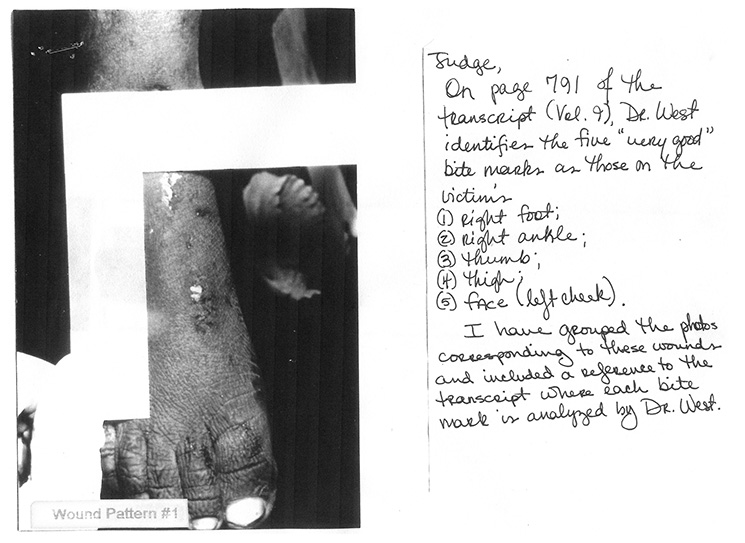 Wound Pattern #1
Judge,
On page 791 of the
transcript (Vol. 9), Dr. West
identifies the five "very good"
bite marks as those on the
victim's
(1) right foot;
(2) right ankle;
(3) thumb;
(4) thigh;
(5) face (left cheek).
I have grouped the photos
corresponding to these wounds
and included a reference to the
transcript where each bite
mark is analyzed by Dr. West.